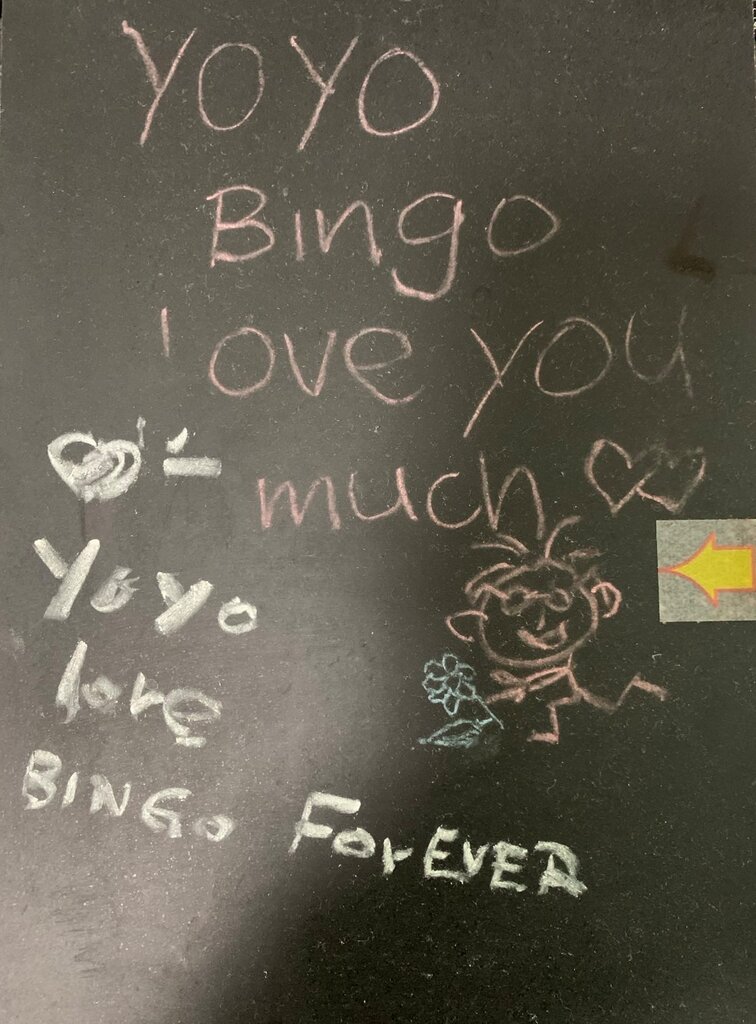 YOYO
Bingo
love you
much
YoYo
love
BINGO ForEVER